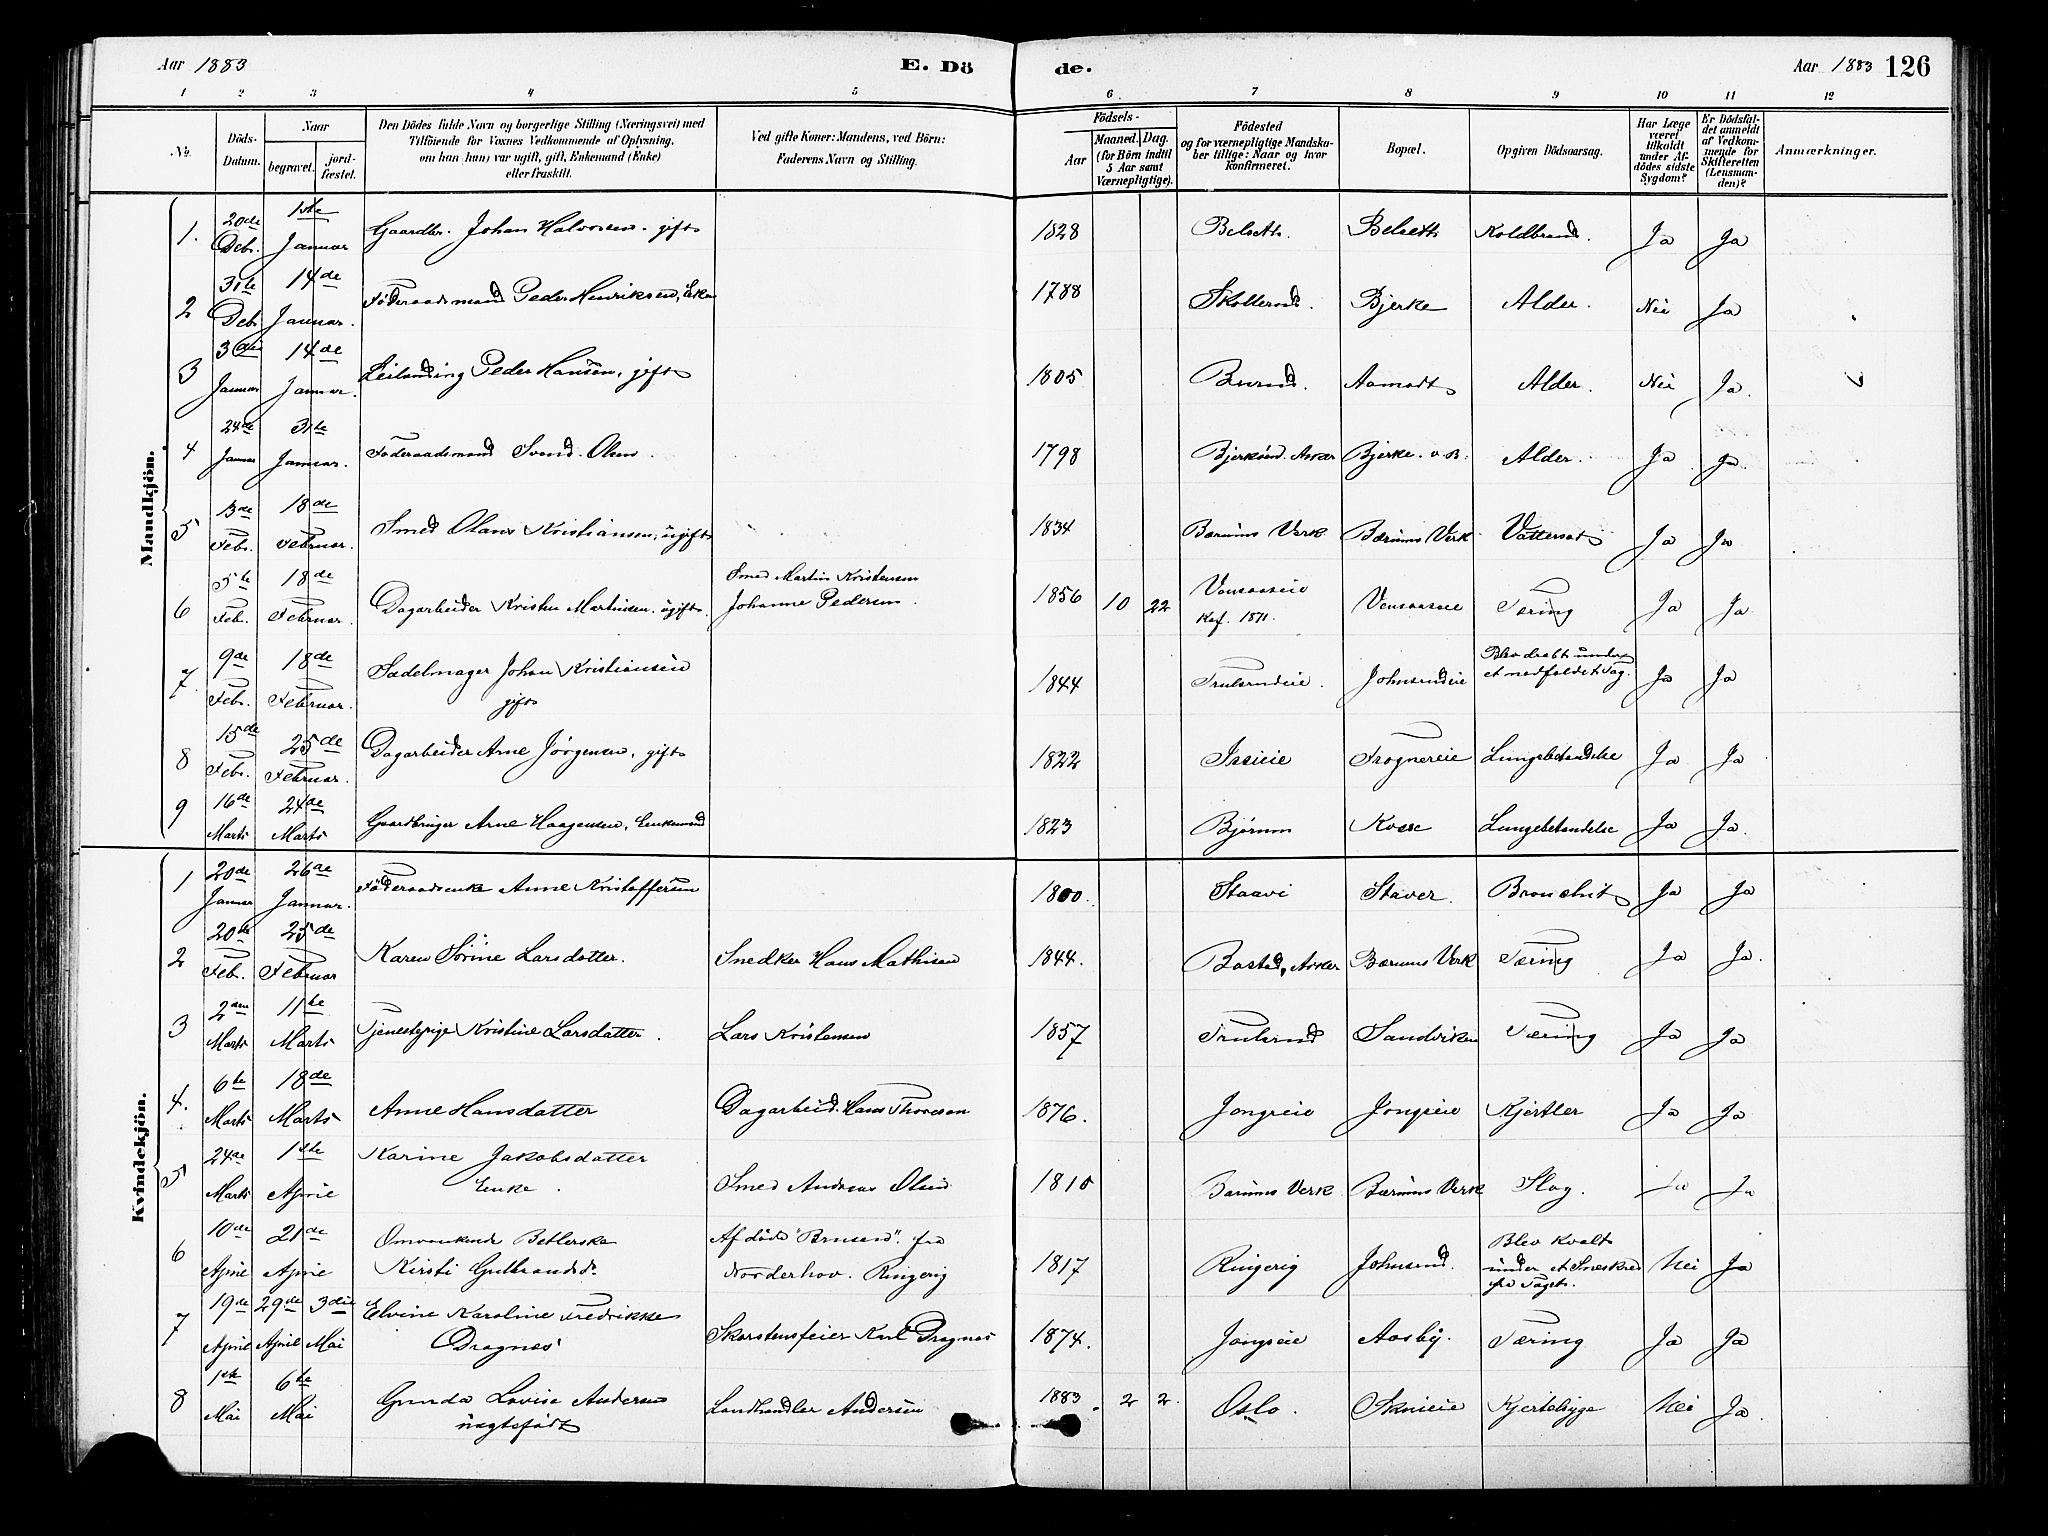 Aar 1883
E. Dö
de.
Aar 1883 126
1 2 3 4 5 6 7 8 9 10 11 12
No.
Döds-Datum.
Naar
begravet.
jord-fæstet.
Den Dödes fulde Navn og borgerlige Stilling (Næringsvei) med
Tilföiende for Voxnes Vedkommende af Oplysning,
om han (hun) var ugift, gift, Enkemand (Enke)
eller fraskilt.
Ved gifte Koner: Mandens, ved Börn:
Faderens Navn og Stilling.
Födsels-
Aar
Maaned. Dag.
(for Börn indtil
5 Aar samt
Værnepligtige).
Födested
og for værnepligtige Mandska-
ber tillige: Naar og hvor
konfirmeret.
Bopæl.
Opgiven Dödsaarsag.
Har Læge
været
tilkaldt
under Af-
dödes sidste
Sygdom?
Er Dödsfal-
det anmeldt
af Vedkom-
mende for
Skifteretten
(Lensman-
den)?
Anmærkninger.
Mandkjön.
1. 20de Debr. 1ste Januar Gaardbr. Johan Halvorsen. gift 1828 Belsett. Belsett Koldbrand. Ja Ja
2 31te Debr 14de Januar. Föderaadsmand Peder Henriksen, Enkem 1788 Bjerke Alder. Nei Ja
3 3die Januar 14de Januar. Leilending Peder Hansen, gift 1805 Burud. Aamodt Alder. Nei Ja.
4 24de Januar 31te Januar. Föderaadsmand Svend Olsen. 1798 Asker Bjerke. v. B. Alder. Ja Ja.
5 3de Febr. 18de Februar. Smed Olaus Kristiansen, ugift 1834 Bærums Verk Bærums Verk Vattersot Ja Ja
6 5te Feb. 18de Februar. Dagarbeider Kristen Martinsen. ugift. Smed Martin Kristensen
Johanne Pedersen. 1856 10 22 Kof. 1871. Tæring Ja Ja
7. 9de Febr. 18de Februar. Sadelmager Johan Kristiansen
gift 1844 Trulsrudeie. Johnsrudeie Blev dræbt under
et nedfaldet Tag. Ja Ja
8 15de Febr. 25de Februar. Dagarbeider Arne Jörgensen, gift 1822 Isieie Frognereie Lungebetændelse Ja Ja
9 16de Marts 24de Marts Gaardbruger Arne Haagensen, Enkemand 1823 Bjørum Lungebetændelse Ja Ja.
Kvindekjön.
1 20de Januar 26de Januar. Föderaadsenke Anne Kristoffersen 1800. Staavi Staver. Bronchit Ja Ja
2 20de Feb. 25de Februar Karen Sörine Larsdatter. Snedker Hans Mathisen 1844. Bastad, Asker Bærums Verk Tæring Ja Ja.
3 2den Marts 11te Marts Tjenestepige Kristine Larsdatter. Lars Kristensen 1857 Trulsrud Sandviken Tæring Ja Ja
4. 6te Marts 18de Marts Anne Hansdatter Dagarbeid. Hans Thoresen 1876. Jongseie Jongseie Kjertler Ja Ja
5 24de Marts 1ste April Karine Jakobsdatter
Enke. Smed Andreas Olsen 1810 Bærums Verk Bærums Verk Slag. Ja Ja
6 10de April 21de April Omvankende Betlerske
Kirsti Gulbrandsd. Af döde "Brusen" fra
Norderhov. Ringerig 1817 Ringerig Johnsrud. Blev kvalt
under et Sneskred
fra Taget. Nei Ja
7 19de April 29de April 3die Mai Elvine Karoline Fredrikke
Dragnes Skorstensfeier Karl Dragnes 1874. Jongseie Aasby. Tæring Ja Ja
8 1ste Mai 6te Mai Gunda Lovise Andersen
uægtefödt Landhandler Andersen 1883. 2 2. Oslo. Kjertelsyge Nei Ja.